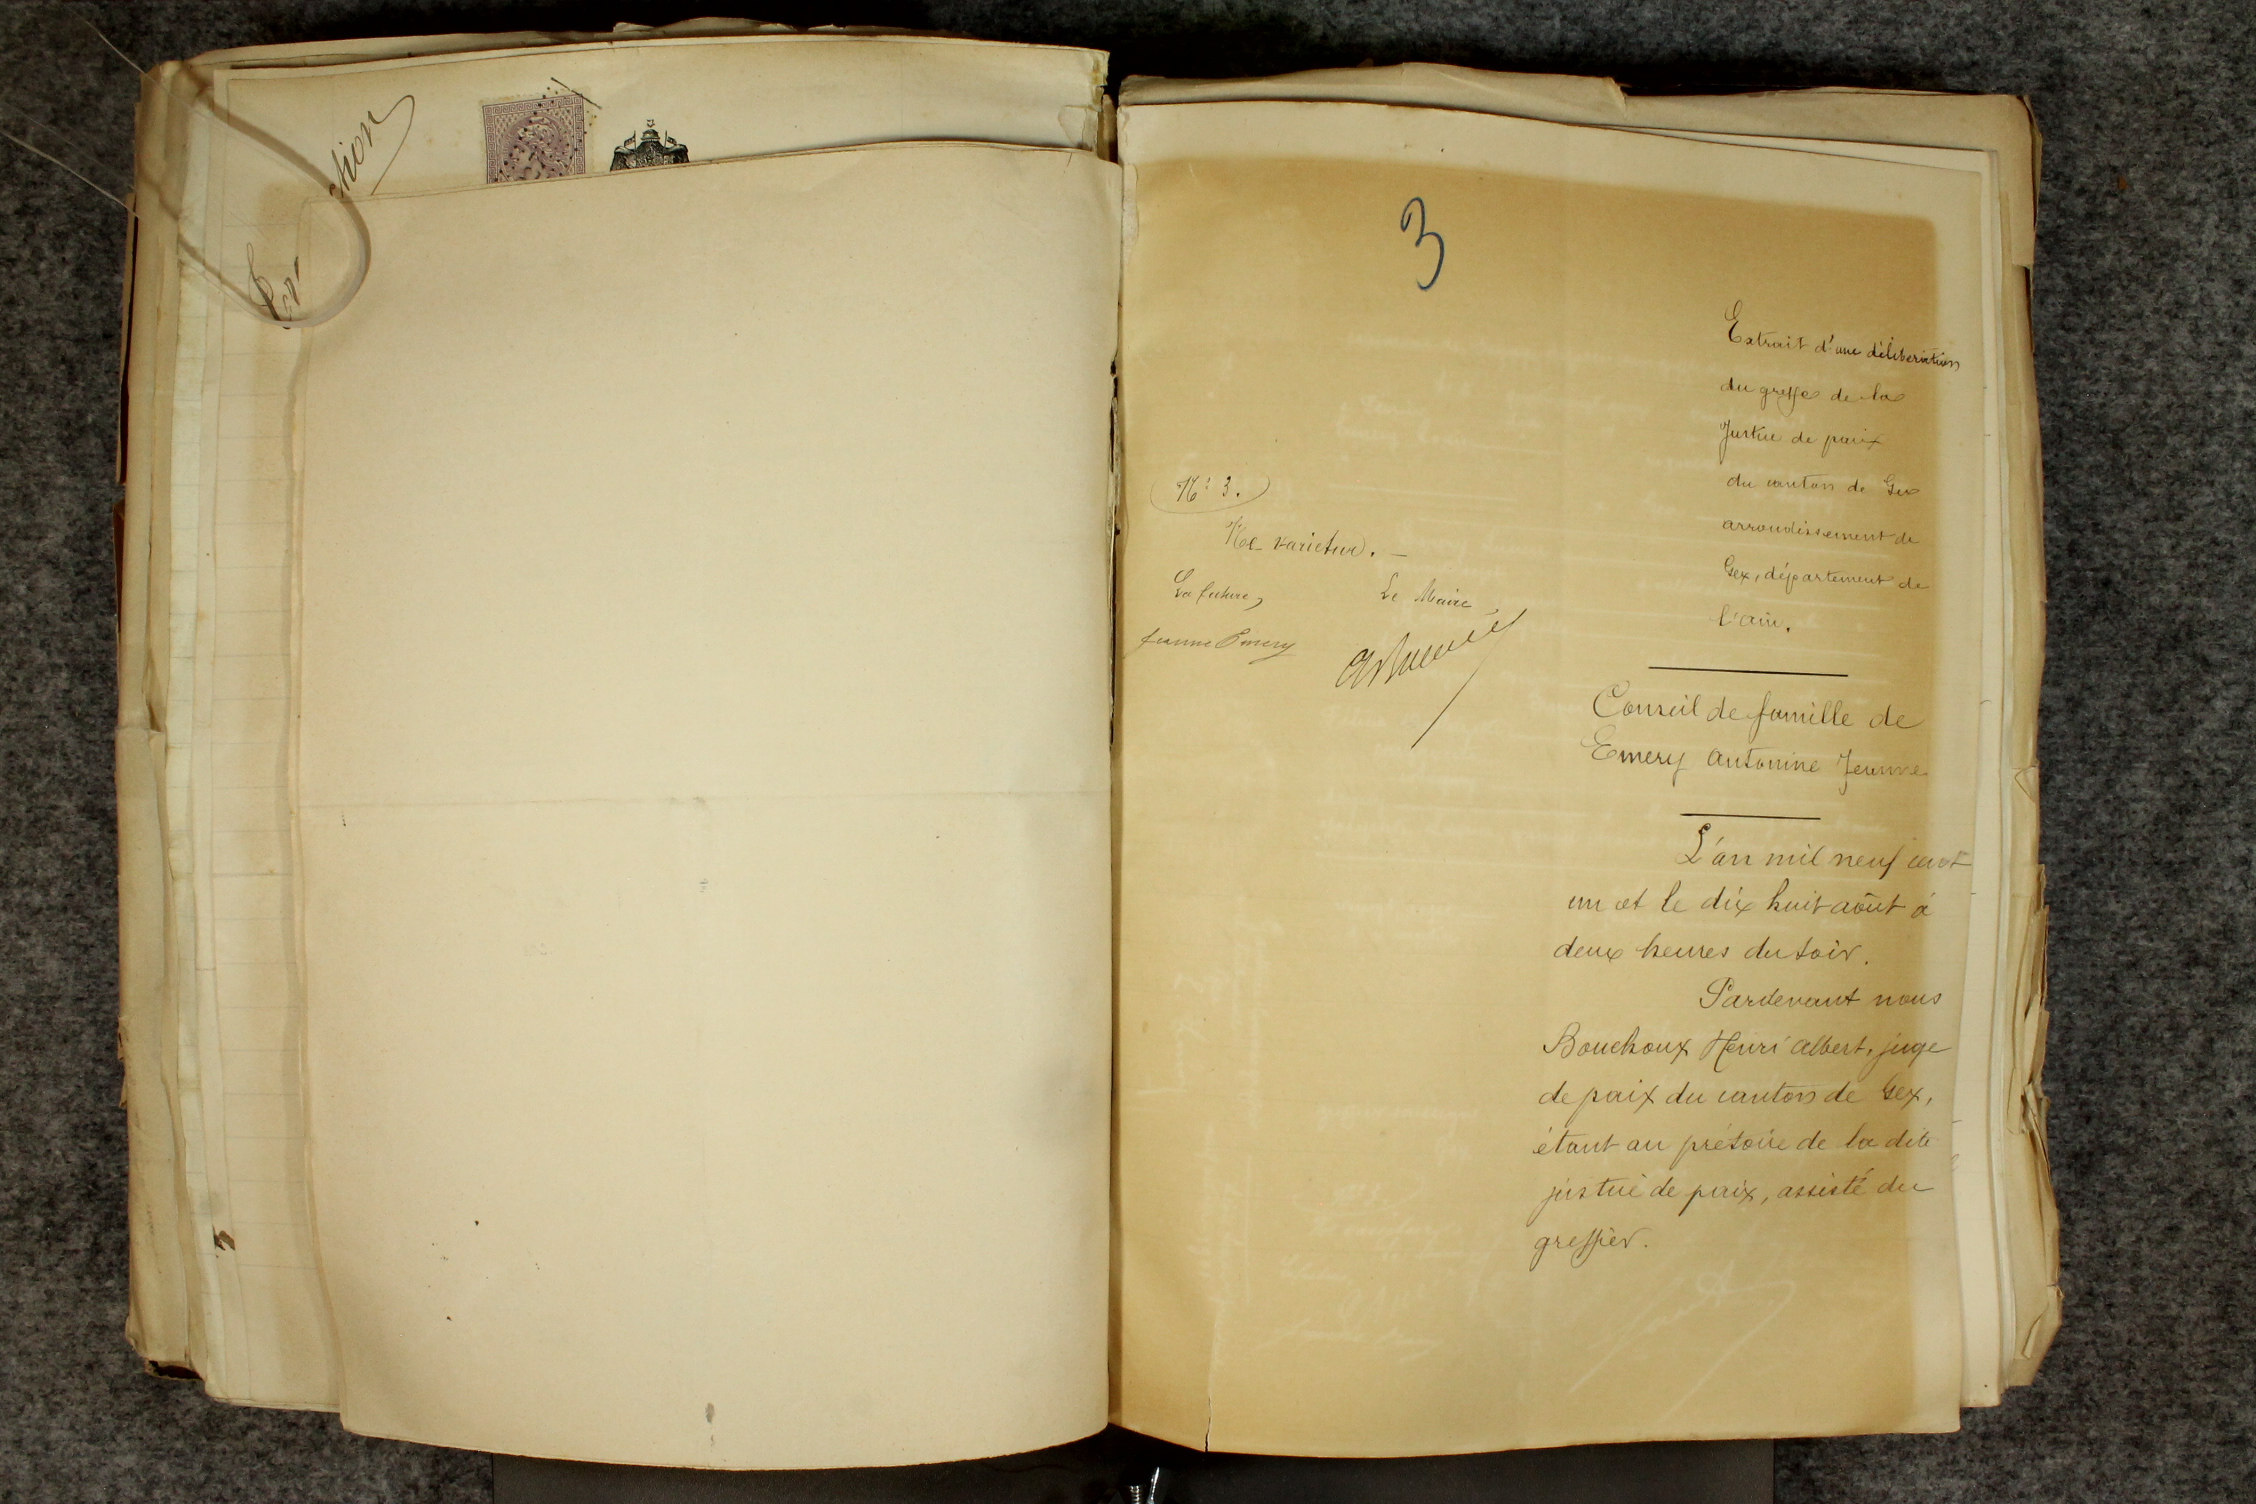 tion
3
Extrait d'une déliberation
du greffe de la
Justice de paix
du canton de Gex
arrondissement de
Gex, département de
l'ain.
N° 3.
Ne varietur. —
La future, Le Maire,
Jeanne Emery
Conseil de famille de
Emery Antonine Jeanne
L'an mil neuf cent
un et le dix huit août à
deux heures du soir.
Pardevant nous
Bouchoux Henri Albert, juge
de paix du canton de Gex,
étant au prétoire de la dite
justice de paix, assisté du
greffier.